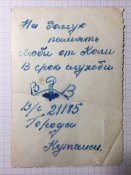 На долгую
память
Любе от Коли
В срок службы
В Э В
В/с 21185
Города
Кутаиси.